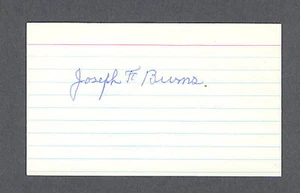 Joseph F. Burns.